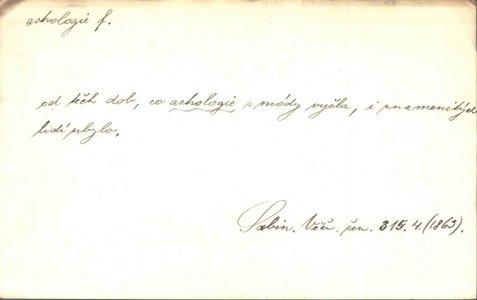 astrologie f.
od těch dob, co astrologie z módy vyšla, i znamenitých
lidí ubylo.
Sabin. Več. pen. 315. 4. (1863).